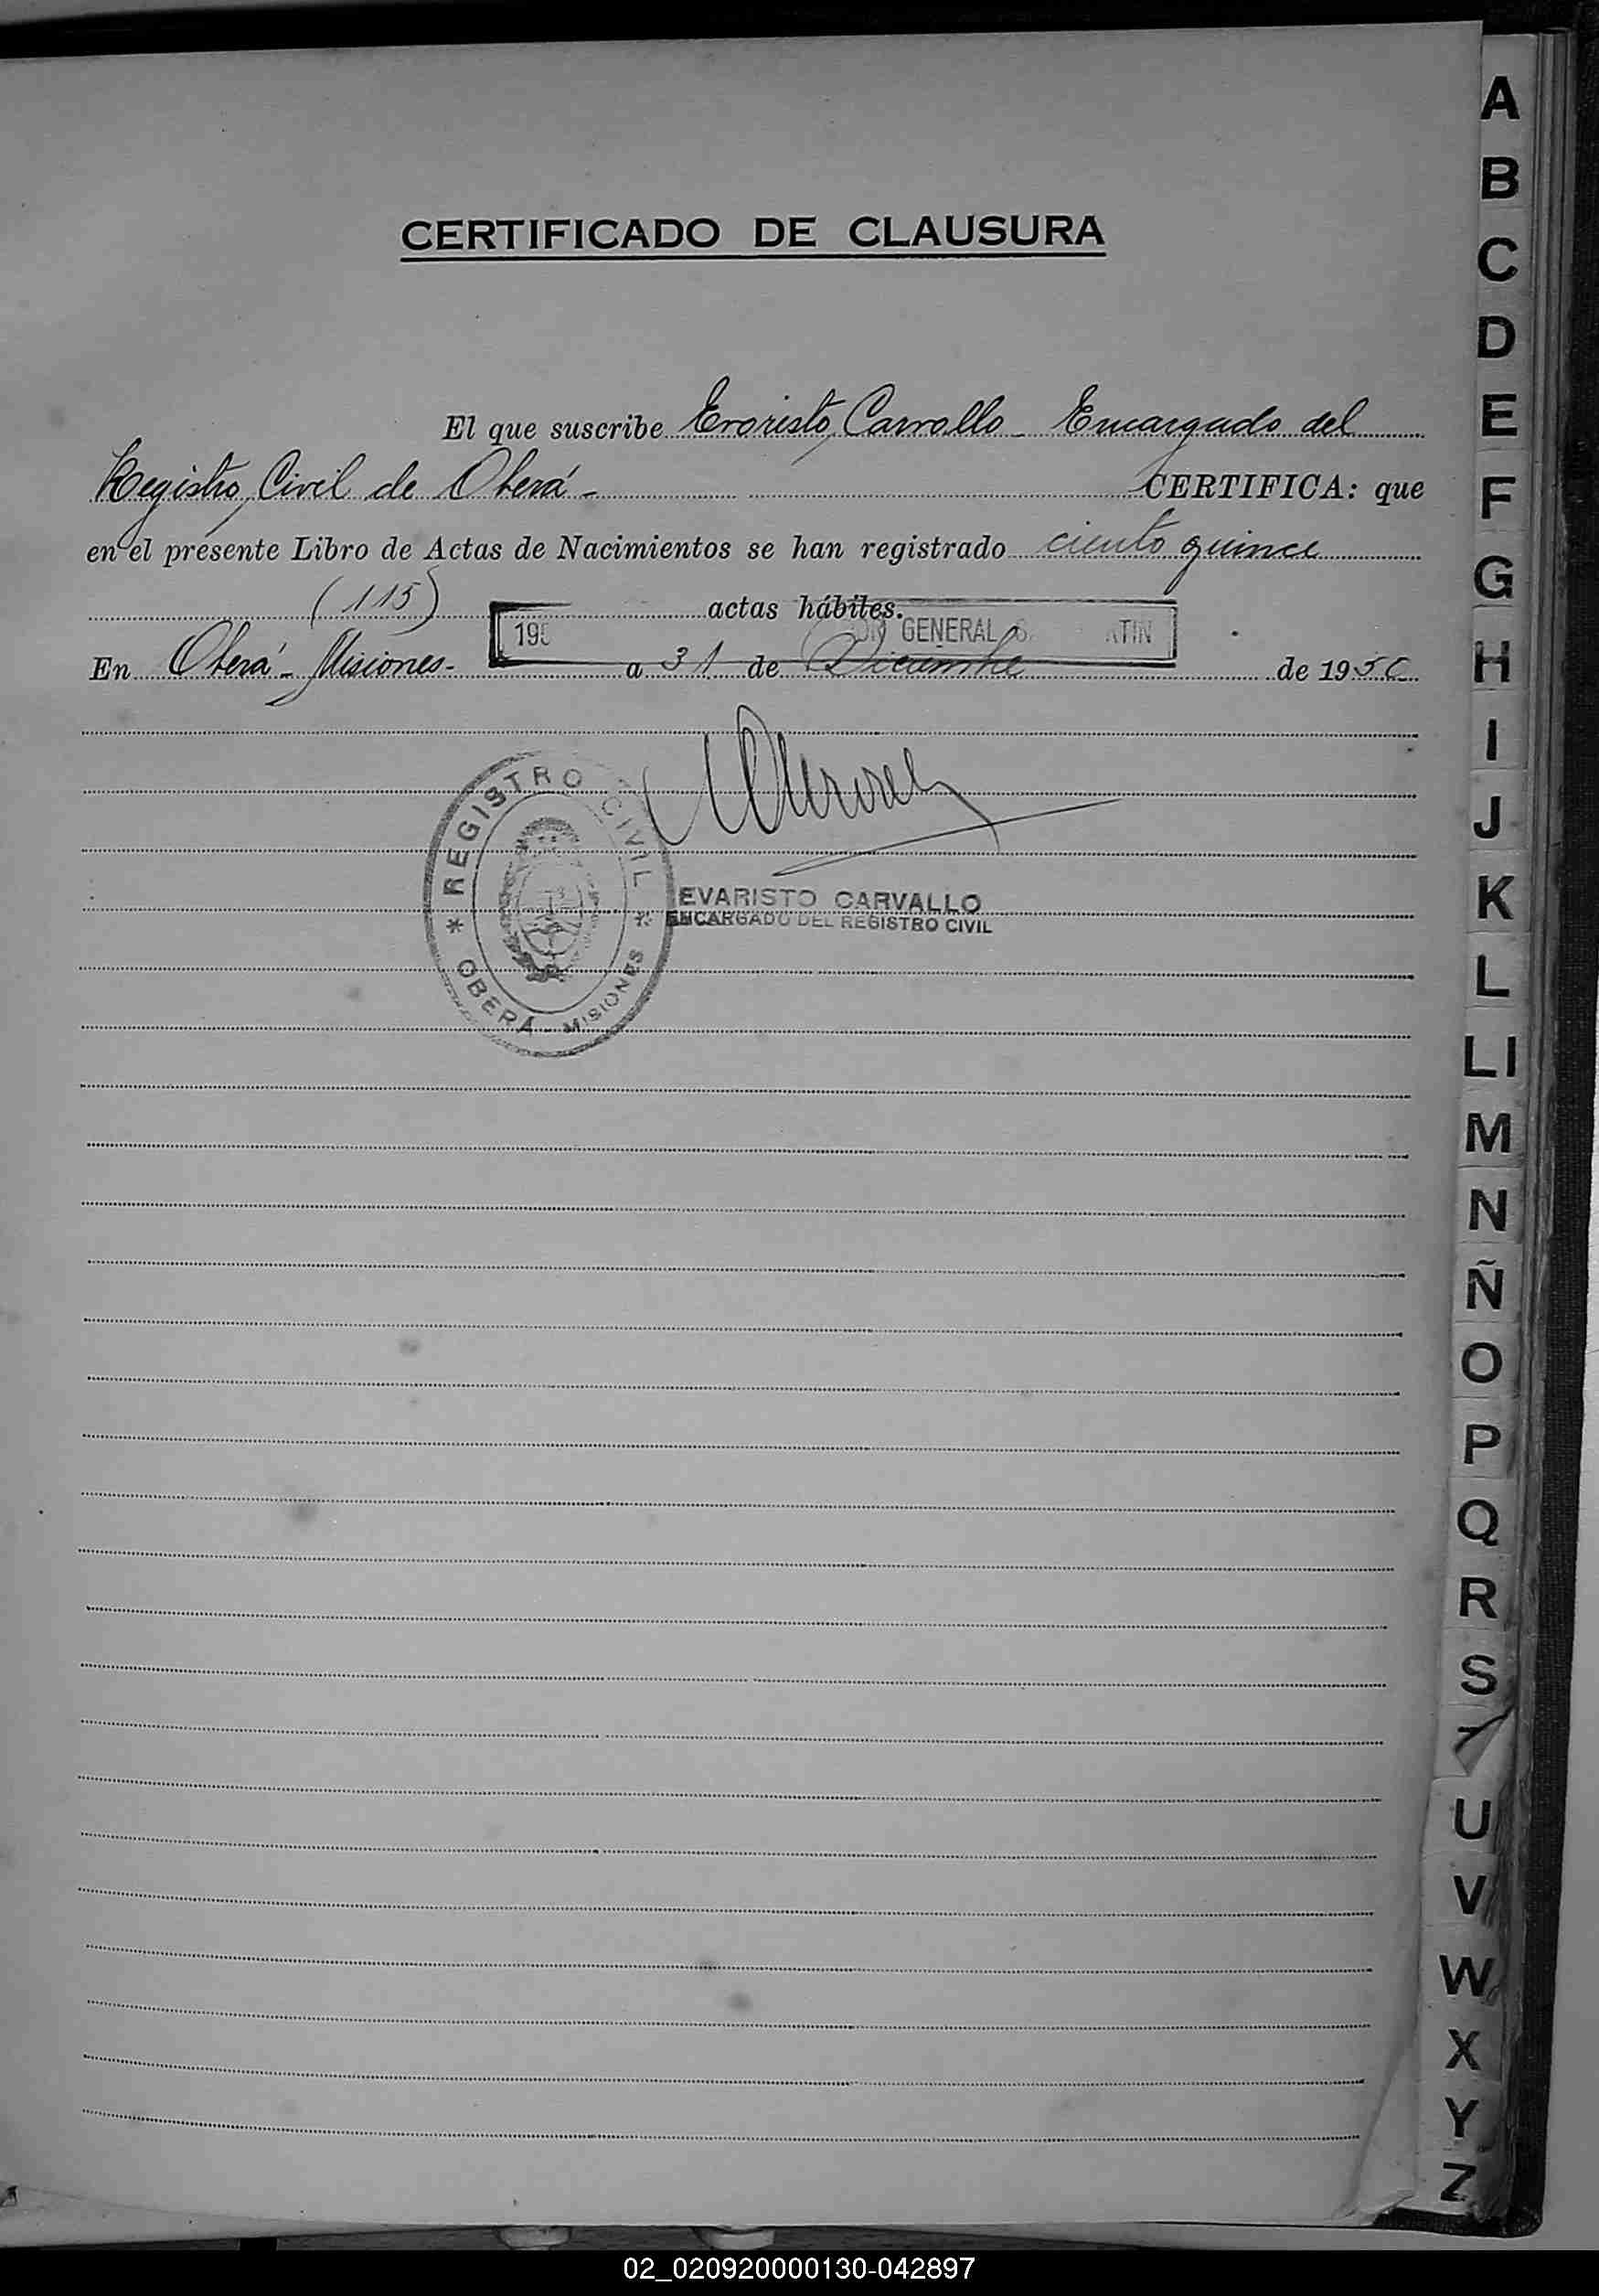 CERTIFICADO DE CLAUSURA
El que suscribe Evaristo Carvallo - Encargado del
Registro Civil de Oberá - CERTIFICA: que
en el presente Libro de Actas de Nacimientos se han registrado ciento quince
(115) actas hábiles.
GENERAL
En Oberá - Misiones - a 31 de Diciembre de 1950
REGISTRO CIVIL
* OBERÁ - MISIONES *
EVARISTO CARVALLO
ENCARGADO DEL REGISTRO CIVIL
A
B
C
D
E
F
G
H
I
J
K
L
Ll
M
N
Ñ
O
P
Q
R
S
U
V
W
X
Y
Z
02_020920000130-042897